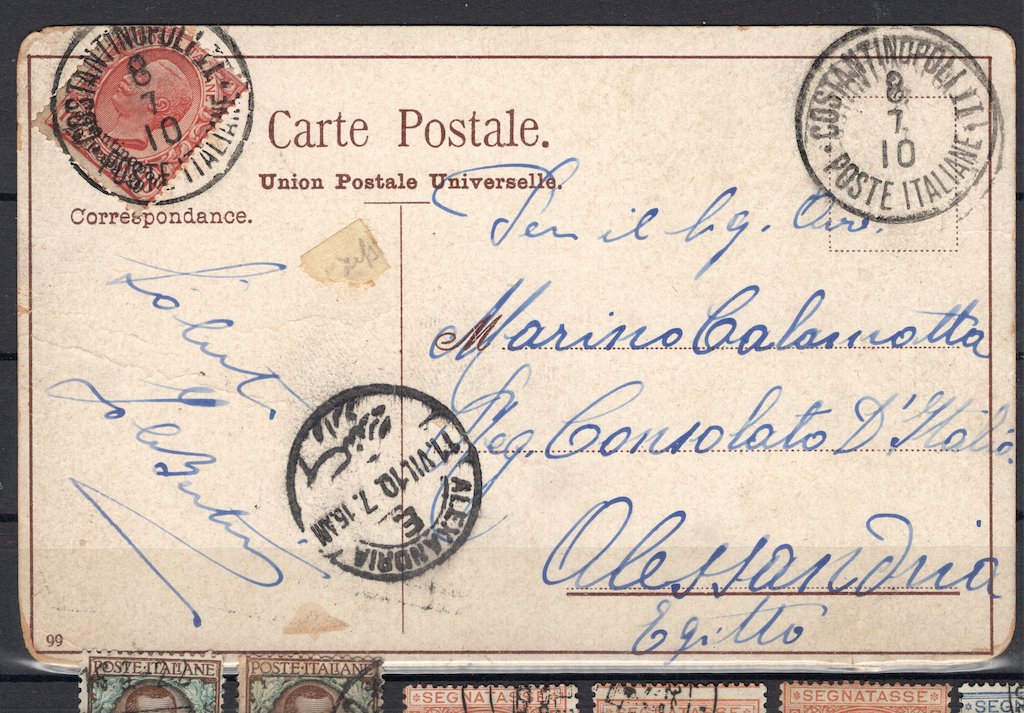 COSTANTINOPOLI
8
7
10
POSTE ITALIANE
COSTANTINOPOLI
8
7
10
POSTE ITALIANE
Carte Postale.
Union Postale Universelle.
Correspondance.
Per il
Marino Calamotta
Reg. Consolato D'Italia
Alessandria
Egitto
Saluti
11.VII.10.7.15AM
ALEXANDRIA
E
99
POSTE·ITALIANE
POSTE·ITALIANE
SEGNATASSE
SEGNATASSE
SEGNATASSE
SEGN